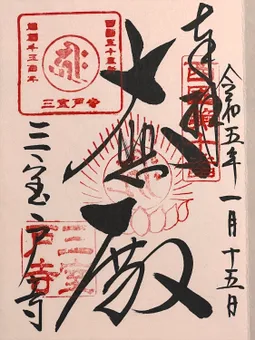 奉拝
令和五年一月十五日
大悲殿
三室戸寺
三室戸寺
三室
戸寺